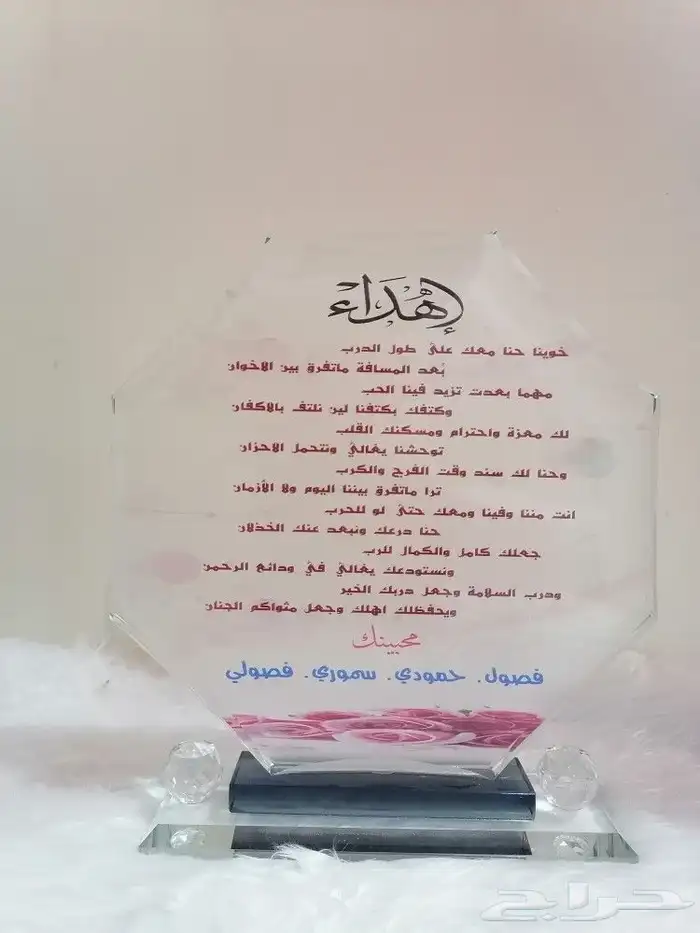 إهْدَاء
خوينا حنا معك على طول الدرب
بُعد المسافة ماتفرق بين الاخوان
مهما بعدت تزيد فينا الحب
وكتفك بكتفنا لين نلتف بالاكفان
لك معزة واحترام ومسكنك القلب
توحشنا يغالي ونتحمل الاحزان
وحنا لك سند وقت الفرح والكرب
ترا ماتفرق بيننا اليوم ولا الأزمان
انت مننا وفينا ومعك حتى لو للحرب
حنا درعك ونبعد عنك الخذلان
جعلك كامل والكمال للرب
ونستودعك يغالي في ودائع الرحمن
ودرب السلامة وجعل دربك الخير
ويحفظلك اهلك وجعل مثواكم الجنان
محبينك
فصول. حمودي. سموري. فصولي
حراج